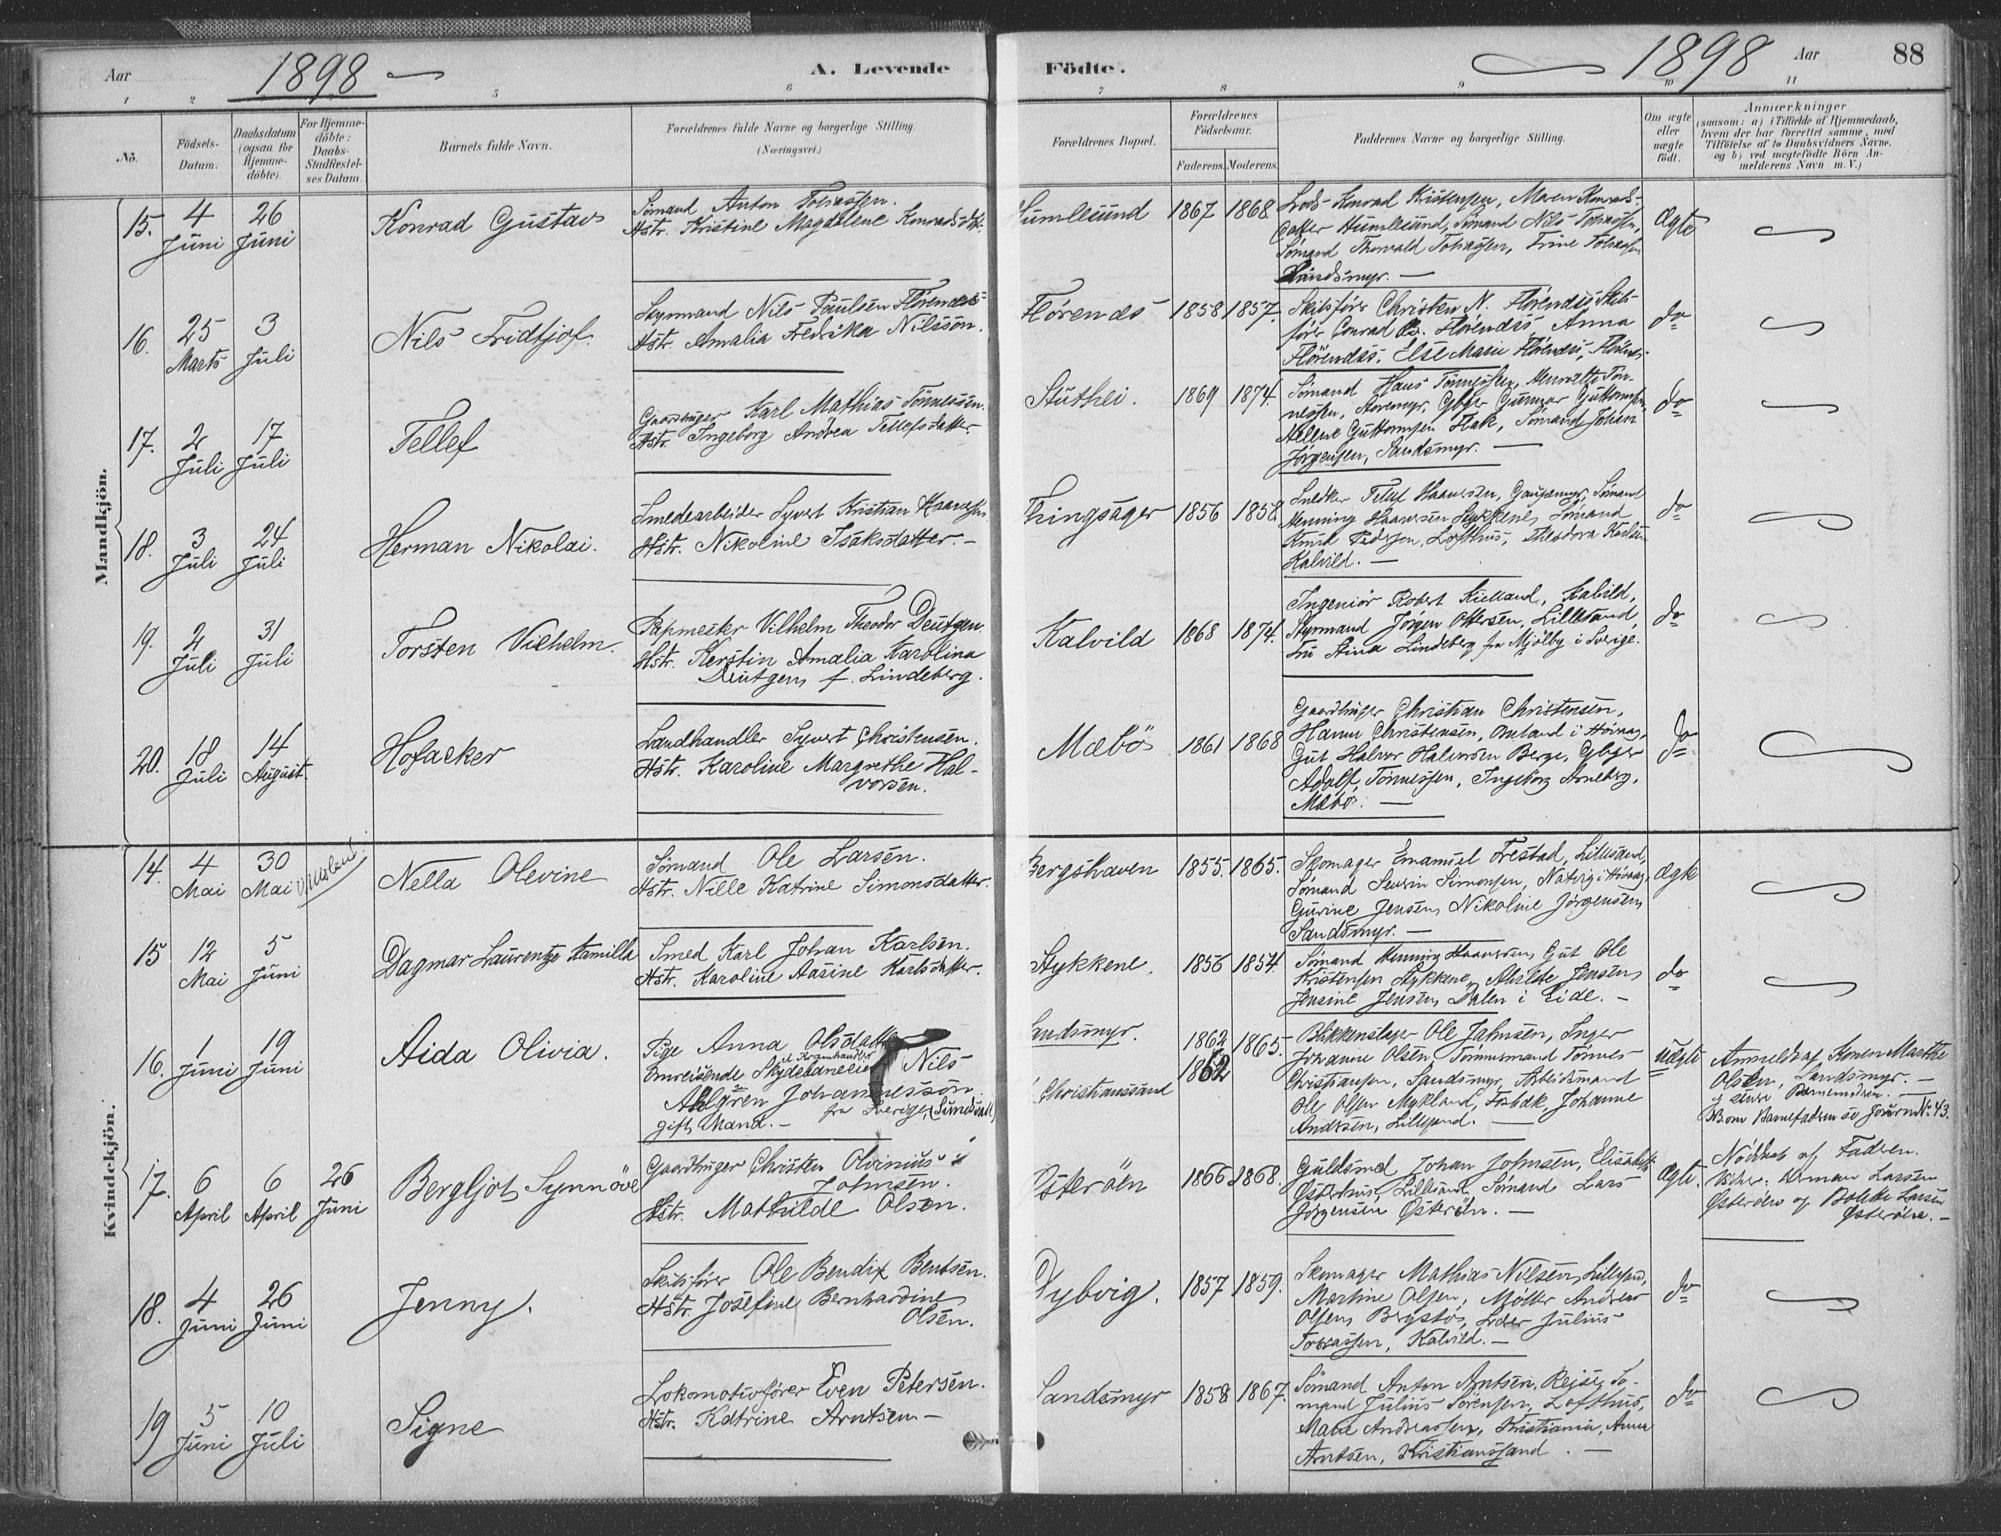 Aar 1898 A. Levende Födte. 1898 Aar 88
1 2 5 6 7 8 9 10 11
No.
Födsels-Datum.
Daabsdatum (ogsaa for Hjemmedöbte).
For Hjemmedöbte: Daabs-Stadfæstelses Datum.
Barnets fulde Navn.
Forældrenes fulde Navne og borgerlige Stilling.
(Næringsvei.)
Forældrenes Bopæl.
Forældrenes Födselsaar.
Faderens. Moderens.
Faddernes Navne og borgerlige Stilling.
Om ægte eller uægte födt.
Anmærkninger
(saasom: a) i Tilfælde af Hjemmedaab,
hvem der har forrettet samme, med
Tilföielse af to Daabsvidners Navne,
og b) ved uægtefödte Börn Anmelderens Navn m. V.)
Mandkjön.
15. 4 Juni 26 Juni
Konrad Gustav
Sömand Anton Tobiassen.
Hstr. Kristine Magdalene Konradsdttr.
Humlesund 1867 1868
Lods Konrad Kristensen, Maren Konrads-
datter Humlesund, Sömand Nils Tobiassen,
Sömand Thorvald Tobiassen, Trine Tobiassen
Sandsmyr. —
Ægte
16. 25 Marts 3 Juli
Nils Fridtjof.
Styrmand Nils Paulsen Flörendes
Hstr. Amalia Fredrika Nilsson.
Flörendes 1858 1857.
Skibsförer Christen N. Flörendes Skibs-
förer Conrad Flörendes, Anna
Flörendes, Else Marie Flörendes, Flörendes.
do
17. 2 Juli 17 Juli
Tellef
Gaardbruger Karl Mathias Tönnessen.
Hstr. Ingeborg Andrea Tellefsdatter.
Stuthei. 1869 1874.
Sömand Hans Tönnessen, Ton-
nessen, Gbger Gunnar Guttormsen,
Helene Guttormsen Flak, Sömand Johan
Jörgensen, Sandsmyr. —
do
18. 3 Juli 24 Juli
Herman Nikolai.
Smedearbeider Syvert Kristian Haanessen
Hstr. Nikoline Isaksdatter. —
Thingsager 1856 1858.
Snedker Tellef Haanesen, Sömand
Henning Haanesen Stykkene, Sömand
Knud Pedersen, Lofthus, Theodora Karlsen
Kalvild. —
do
19. 2 Juli 31 Juli
Torsten Vilhelm.
Papmester Vilhelm Theodor Deutgen.
Hstr. Kerstin Amalia Karolina
Deutgen f. Lindeberg.
Kalvild 1868 1874.
Ingeniör Robert Kielland, Kalvild,
Styrmand Jörgen Ottersen, Lillesand,
Fru Stina Lindeberg fra Mjölby i Sverige.
do
20. 18 Juli 14 August.
Hofacker
Landhandler Syvert Christensen.
Hstr. Karoline Margrethe Hal-
vorsen.
Mæbö 1861 1868
Gaardbruger Christian Christensen,
Hanne Christensen, Omland i Hövaag,
Gut Halvor Halvorsen Berge, Gbger
Adolf Tönnessen, Ingeborg Arneberg,
Mæbö. —
do
Kvindekjön.
14. 4 Mai 30 Mai
Nella Olevine
Sömand Ole Larsen.
Hstr. Nille Katrine Simonsdatter.
Bergshaven 1855. 1865.
Skomager Emanuel Frestad, Lillesand,
Sömand Severin Simonsen, Natvig i Hövaag,
Gurine Jensen, Nikoline Jörgensen,
Sandsmyr. —
Ægte
15 12 Mai 5 Juni
Dagmar Laurentze Kamilla
Smed Karl Johan Karlsen.
Hstr. Karoline Aasine Karlsdatter.
Stykkene. 1856 1854.
Sömand Henning Haanesen, Gut Ole
Kristensen Stykkene, Alvilde Jensen,
Jensine Jensen, Dalen i Eide. —
do
16. 1 Juni 19 Juni
Aida Olivia.
Pige Anna Olsdatter
Omreisende Kramhandler Nils
Ahlgren Johannesson
fra Sverige,
gift Mand. —
Sandsmyr. 1862 1865.
Christianssand 1862
Blikkenslager Ole Jahnsen, Inger
Johanne Olsen, Tömmermand Tönnes
Christiansen, Sandsmyr, Arbeidsmand
Ole Olsen Mykland, Johanne
Andersen, Lillesand. —
Uægte
Anmeldt af Konen Marthe
Olsen, Sandsmyr. —
og senere Barnemoderen. —
NB om Barnefaderen se Journ. No. 43.
17. 6 April 6 April 26 Juni
Bergljot Synnöve
Gaardbruger Christen Olvinius
Johnsen.
Hstr. Mathilde Olsen.
Österöen 1866 1868.
Guldsmed Johan Johnsen, Elisabeth
Österhus, Lillesand, Sömand Lars
Jörgensen Österöen. —
Ægte.
Nöddöbt af Faderen.
Vidner: Herman Larsen
Österöen og Bolette Larsen
Österöen. —
18. 4 Juni 26 Juni
Jenny.
Skibsförer Ole Bendix Bentsen.
Hstr. Josefine Bernhardine
Olsen.
Dybvig. 1857 1859.
Skomager Mathias Nilsen, Lillesand,
Martine Olsen, Möller Andreas
Olsen Bergstö, Julius
Tobiassen, Kalvild. —
do
19 5 Juni 10 Juli
Signe
Lokomotivförer Even Petersen.
Hstr. Katrine Arntsen —
Sandsmyr 1858 1867.
Sömand Anton Arntsen, Rejse, Sö-
mand Julius Sörensen, Lofthus,
Andreassen, Kristiania, Anna
Arntsen, Kristianssand. —
do